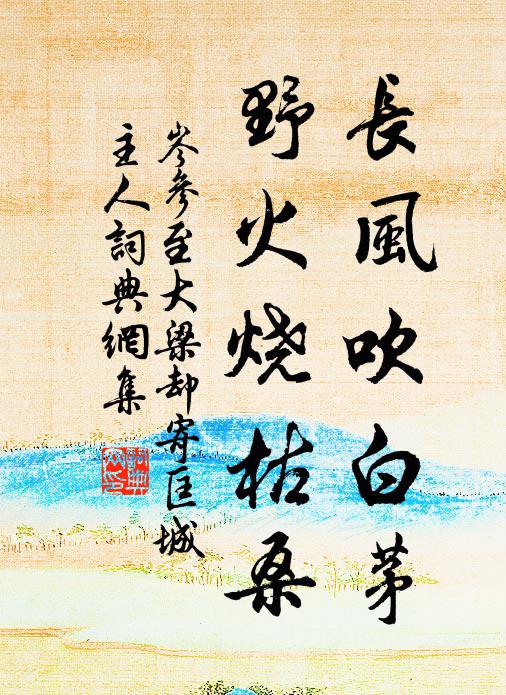 長風吹白茅
野火燒枯桑
岑參至大梁却寄匡城
主人詞典網集